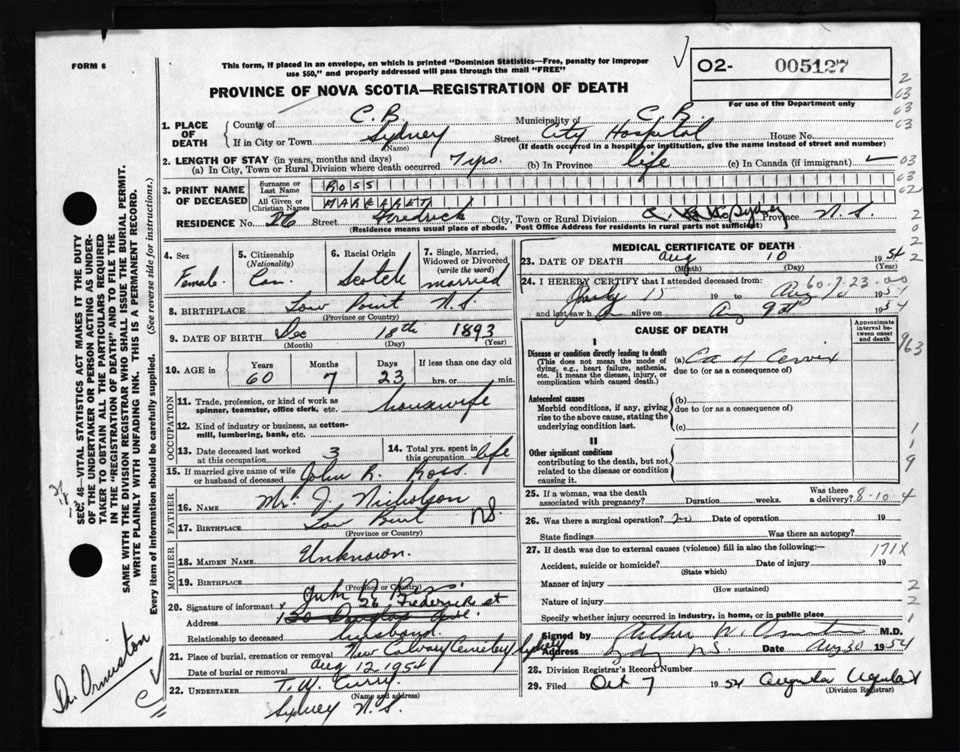 FORM 6
This form, if placed in an envelope, on which is printed "Dominion Statistics—Free, penalty for improper
use $50," and properly addressed will pass through the mail "FREE"
PROVINCE OF NOVA SCOTIA—REGISTRATION OF DEATH
O2- 005127
For use of the Department only
2
03
03
03
03
03
02
2
0
2
2
1. PLACE OF DEATH
County of C. B. Municipality of C. B.
If in City or Town Sydney Street City Hospital House No.
(Name) (If death occurred in a hospital or institution, give the name instead of street and number)
2. LENGTH OF STAY (in years, months and days)
(a) In City, Town or Rural Division where death occurred 7 yrs. (b) In Province life (c) In Canada (if immigrant)
3. PRINT NAME OF DECEASED
Surname or Last Name ROSS
All Given or Christian Names MARGARET
RESIDENCE No. 26 Street Fredrick City, Town or Rural Division Sydney Province N.S.
(Residence means usual place of abode. Post Office Address for residents in rural parts not sufficient)
4. Sex Female
5. Citizenship (Nationality) Can.
6. Racial Origin Scotch
7. Single, Married, Widowed or Divorced (write the word) married
8. BIRTHPLACE Low Point N.S.
(Province or Country)
9. DATE OF BIRTH Dec 18th 1893
(Month) (Day) (Year)
10. AGE in Years 60 Months 7 Days 23 If less than one day old
hrs. or min.
OCCUPATION
11. Trade, profession, or kind of work as spinner, teamster, office clerk, etc. housewife
12. Kind of industry or business, as cotton-mill, lumbering, bank, etc.
13. Date deceased last worked at this occupation 3
14. Total yrs. spent in this occupation life
15. If married give name of wife or husband of deceased John R. Ross.
FATHER
16. NAME Mr. J. Nicholson
17. BIRTHPLACE Low Point N.S.
MOTHER
18. MAIDEN NAME Unknown.
19. BIRTHPLACE
(Province or Country)
20. Signature of informant John R Ross
26 Frederick St
Address
Relationship to deceased husband.
21. Place of burial, cremation or removal New Calvary Cemetery Sydney
Date of burial or removal Aug 12 1954
22. UNDERTAKER T. W. Curry
(Name and address)
Sydney N.S.
MEDICAL CERTIFICATE OF DEATH
23. DATE OF DEATH Aug 10 1954
(Month) (Day) (Year)
60-7-23-00
24. I HEREBY CERTIFY that I attended deceased from:
July 15 19 to Aug 1954
and last saw h alive on Aug 9th 1954
CAUSE OF DEATH
Approximate interval between onset and death
I
Disease or condition directly leading to death
(This does not mean the mode of dying, e.g., heart failure, asthenia, etc. It means the disease, injury, or complication which caused death.)
(a) Ca of Cervix
due to (or as a consequence of)
963
Antecedent causes
Morbid conditions, if any, giving rise to the above cause, stating the underlying condition last.
(b)
due to (or as a consequence of)
(c)
II
Other significant conditions
contributing to the death, but not related to the disease or condition causing it.
1
1
9
25. If a woman, was the death associated with pregnancy? Duration weeks. Was there a delivery?
8-10-4
26. Was there a surgical operation? no Date of operation 19
State findings Was there an autopsy?
27. If death was due to external causes (violence) fill in also the following:—
171X
Accident, suicide or homicide? Date of injury 19
(State which)
Manner of injury
(How sustained)
2
Nature of injury
2
Specify whether injury occurred in industry, in home, or in public place
1
Signed by Arthur W. Ormiston M.D.
Address Sydney N.S. Date Aug 30 1954
28. Division Registrar's Record Number
29. Filed Oct 7 1954
(Division Registrar)
SEC. 46—VITAL STATISTICS ACT MAKES IT THE DUTY
OF THE UNDERTAKER OR PERSON ACTING AS UNDER-
TAKER TO OBTAIN ALL THE PARTICULARS REQUIRED
IN THE "REGISTRATION OF DEATH" AND TO FILE THE
SAME WITH THE DIVISION REGISTRAR WHO SHALL ISSUE THE BURIAL PERMIT.
WRITE PLAINLY WITH UNFADING INK. THIS IS A PERMANENT RECORD.
Every item of information should be carefully supplied. (See reverse side for instructions.)
Dr. Ormiston
C